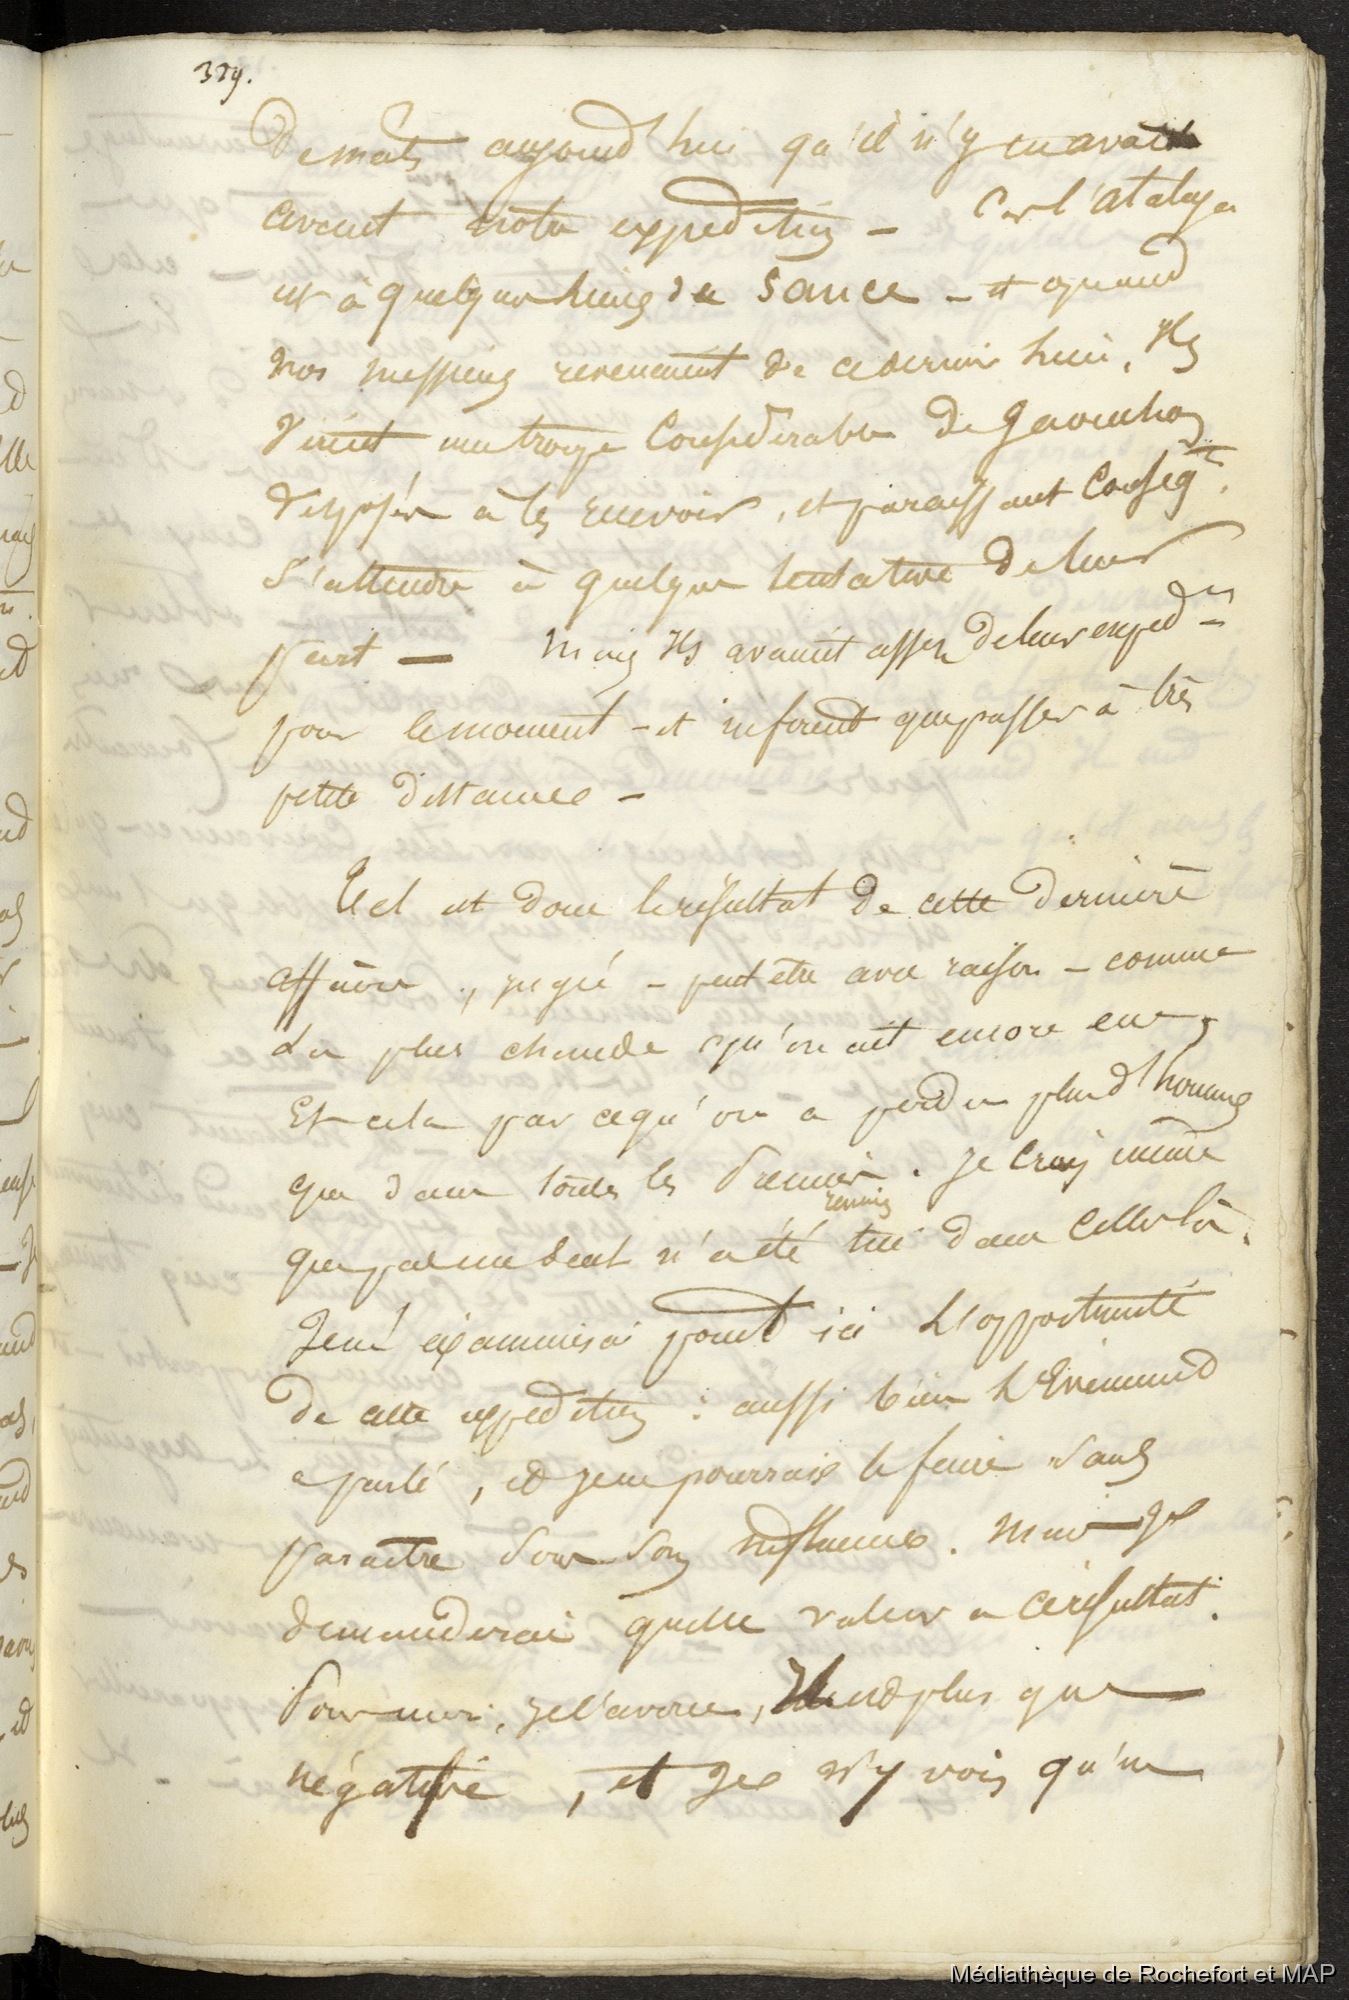 329.
de mats aujourd'hui qu'il n'y en avait
avant notre expedition — Car l'atalaya
est à quelques lieues de Sauce — et quand
nos messieurs revenaient de ce dernier lieu, Ils
virent une troupe Considérable de Gaouchos
disposés à les recevoir, et paraissant Conséqt.
s'attendre à quelque tentative de leur
part — Mais Ils avaient assez de leur exped.on
pour le moment — et ne firent que passer à très
petite distance —
Tel est donc le résultat de cette dernière
affaire, jugée — peut être avec raison — comme
La plus chaude qu'on ait encore eue,
Et cela par ce qu'on a perdu plus d'hommes
que dans toutes les Premières. Je crois même
réunies
que pas un seul n'a été tué dans Celles là.
Je n'examinerai point ici L'opportunité
de cette expedition : aussi bien L'Evènement
a parlé, et je ne pourrais le faire sans
paraître sous son influence. Mais Je
demanderai quelle valeur a ce résultat.
Pour moi, je l'avoue, Il est plus que
négative, et Je n'y vois qu'un
Médiathèque de Rochefort et MAP